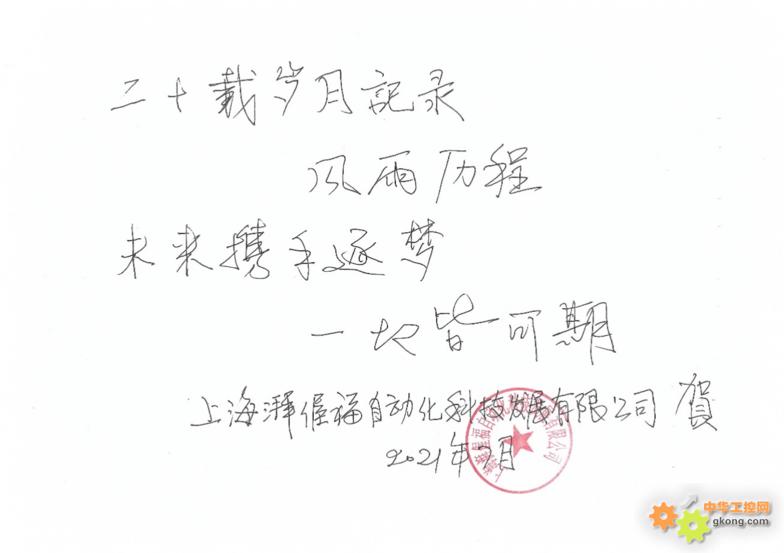 二十載岁月記录
风雨历程
未来攜手逐梦
一切皆可期
上海 福自动化科技发展有限公司 賀
2021年7月
福自 有限公司
中华工控网
gkong.com